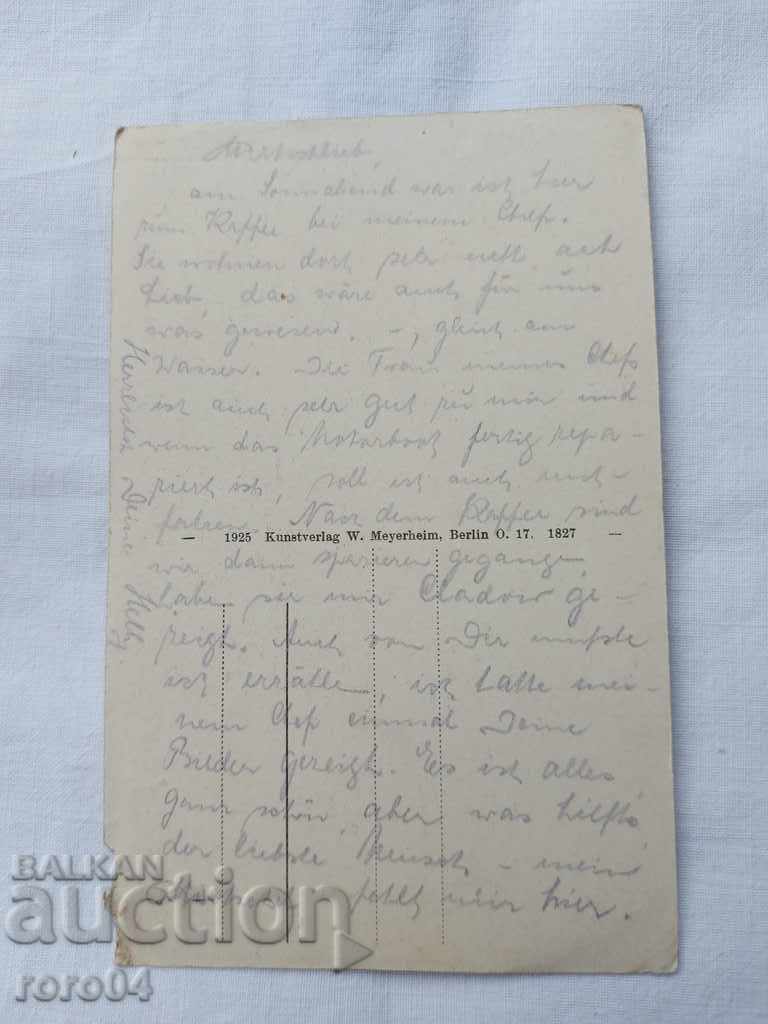 am Sonnabend war ich hier
zum Kaffee bei meinem Chef.
Sie wohnen dort sehr nett ach
Lieb, das wäre auch für uns
was gewesen. –, gleich am
Wasser. – Die Frau meines Chefs
ist auch sehr gut zu mir und
wenn das Motorboot fertig repa-
riert ist, soll ich auch mit-
fahren. Nach dem Kaffee sind
— 1925 Kunstverlag W. Meyerheim, Berlin O. 17. 1827 —
wir dann spazieren gegangen
haben sie mir Cladow ge-
zeigt. Auch von Dir mußte
ich erzählen, ich hatte mei-
nem Chef einmal Deine
Bilder gezeigt. Es ist alles
ganz schön, aber was hilfts,
der liebste Mensch – mein
fehlt mir hier.
Deine
BALKAN
auction
roro04